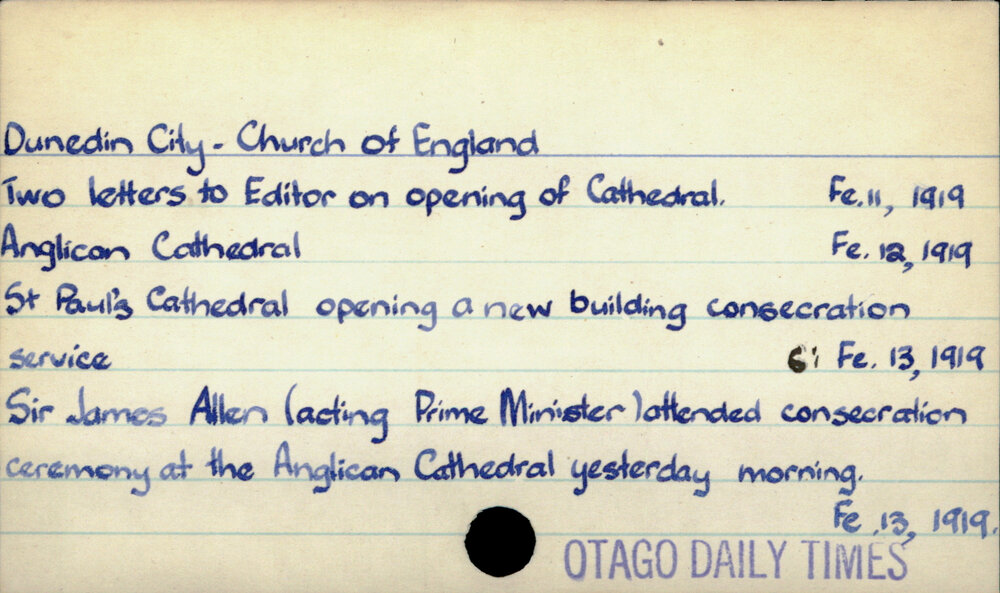 Dunedin City - Church of England
Two letters to Editor on opening of Cathedral. Fe. 11, 1919
Anglican Cathedral Fe. 12, 1919
St Paul's Cathedral opening a new building consecration
service 6: Fe. 13, 1919
Sir James Allen (acting Prime Minister) attended consecration
ceremony at the Anglican Cathedral yesterday morning.
Fe. 13, 1919.
OTAGO DAILY TIMES